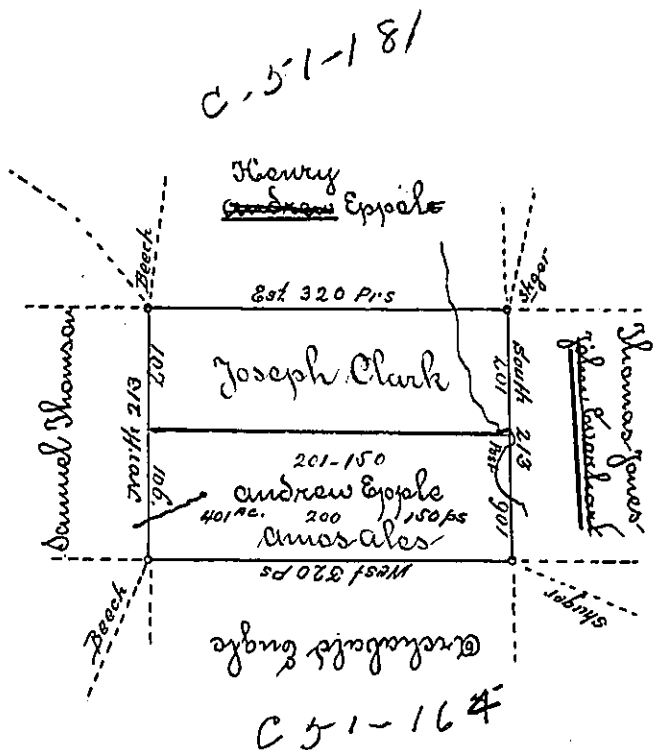 C-51-181
Henry
andrew Epple
Beech
Shger
Est. 320 Prs
Samuel Thomson
North 213
107
Joseph Clark
South 213
107
Thomas Jones
201-150
andrew Epple
401 ac. 200 150 ps
amos ales
106
Post
106
West 320 Ps
Beech
Shuger
Archabald Engle
C 51-164